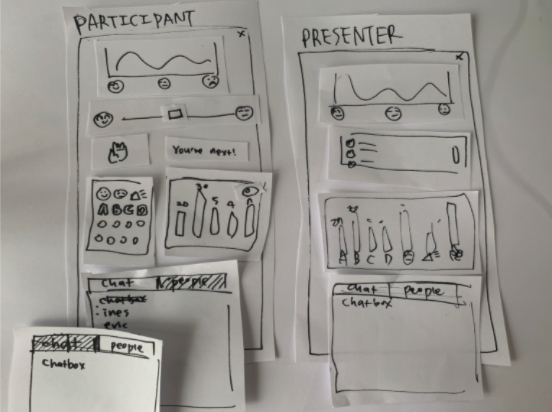 PARTICIPANT
x
You're next!
A B C D
20 30 5 4
chat people
chatbox
ines
eric
chat people
chatbox
PRESENTER
x
A B C D
chat people
chatbox